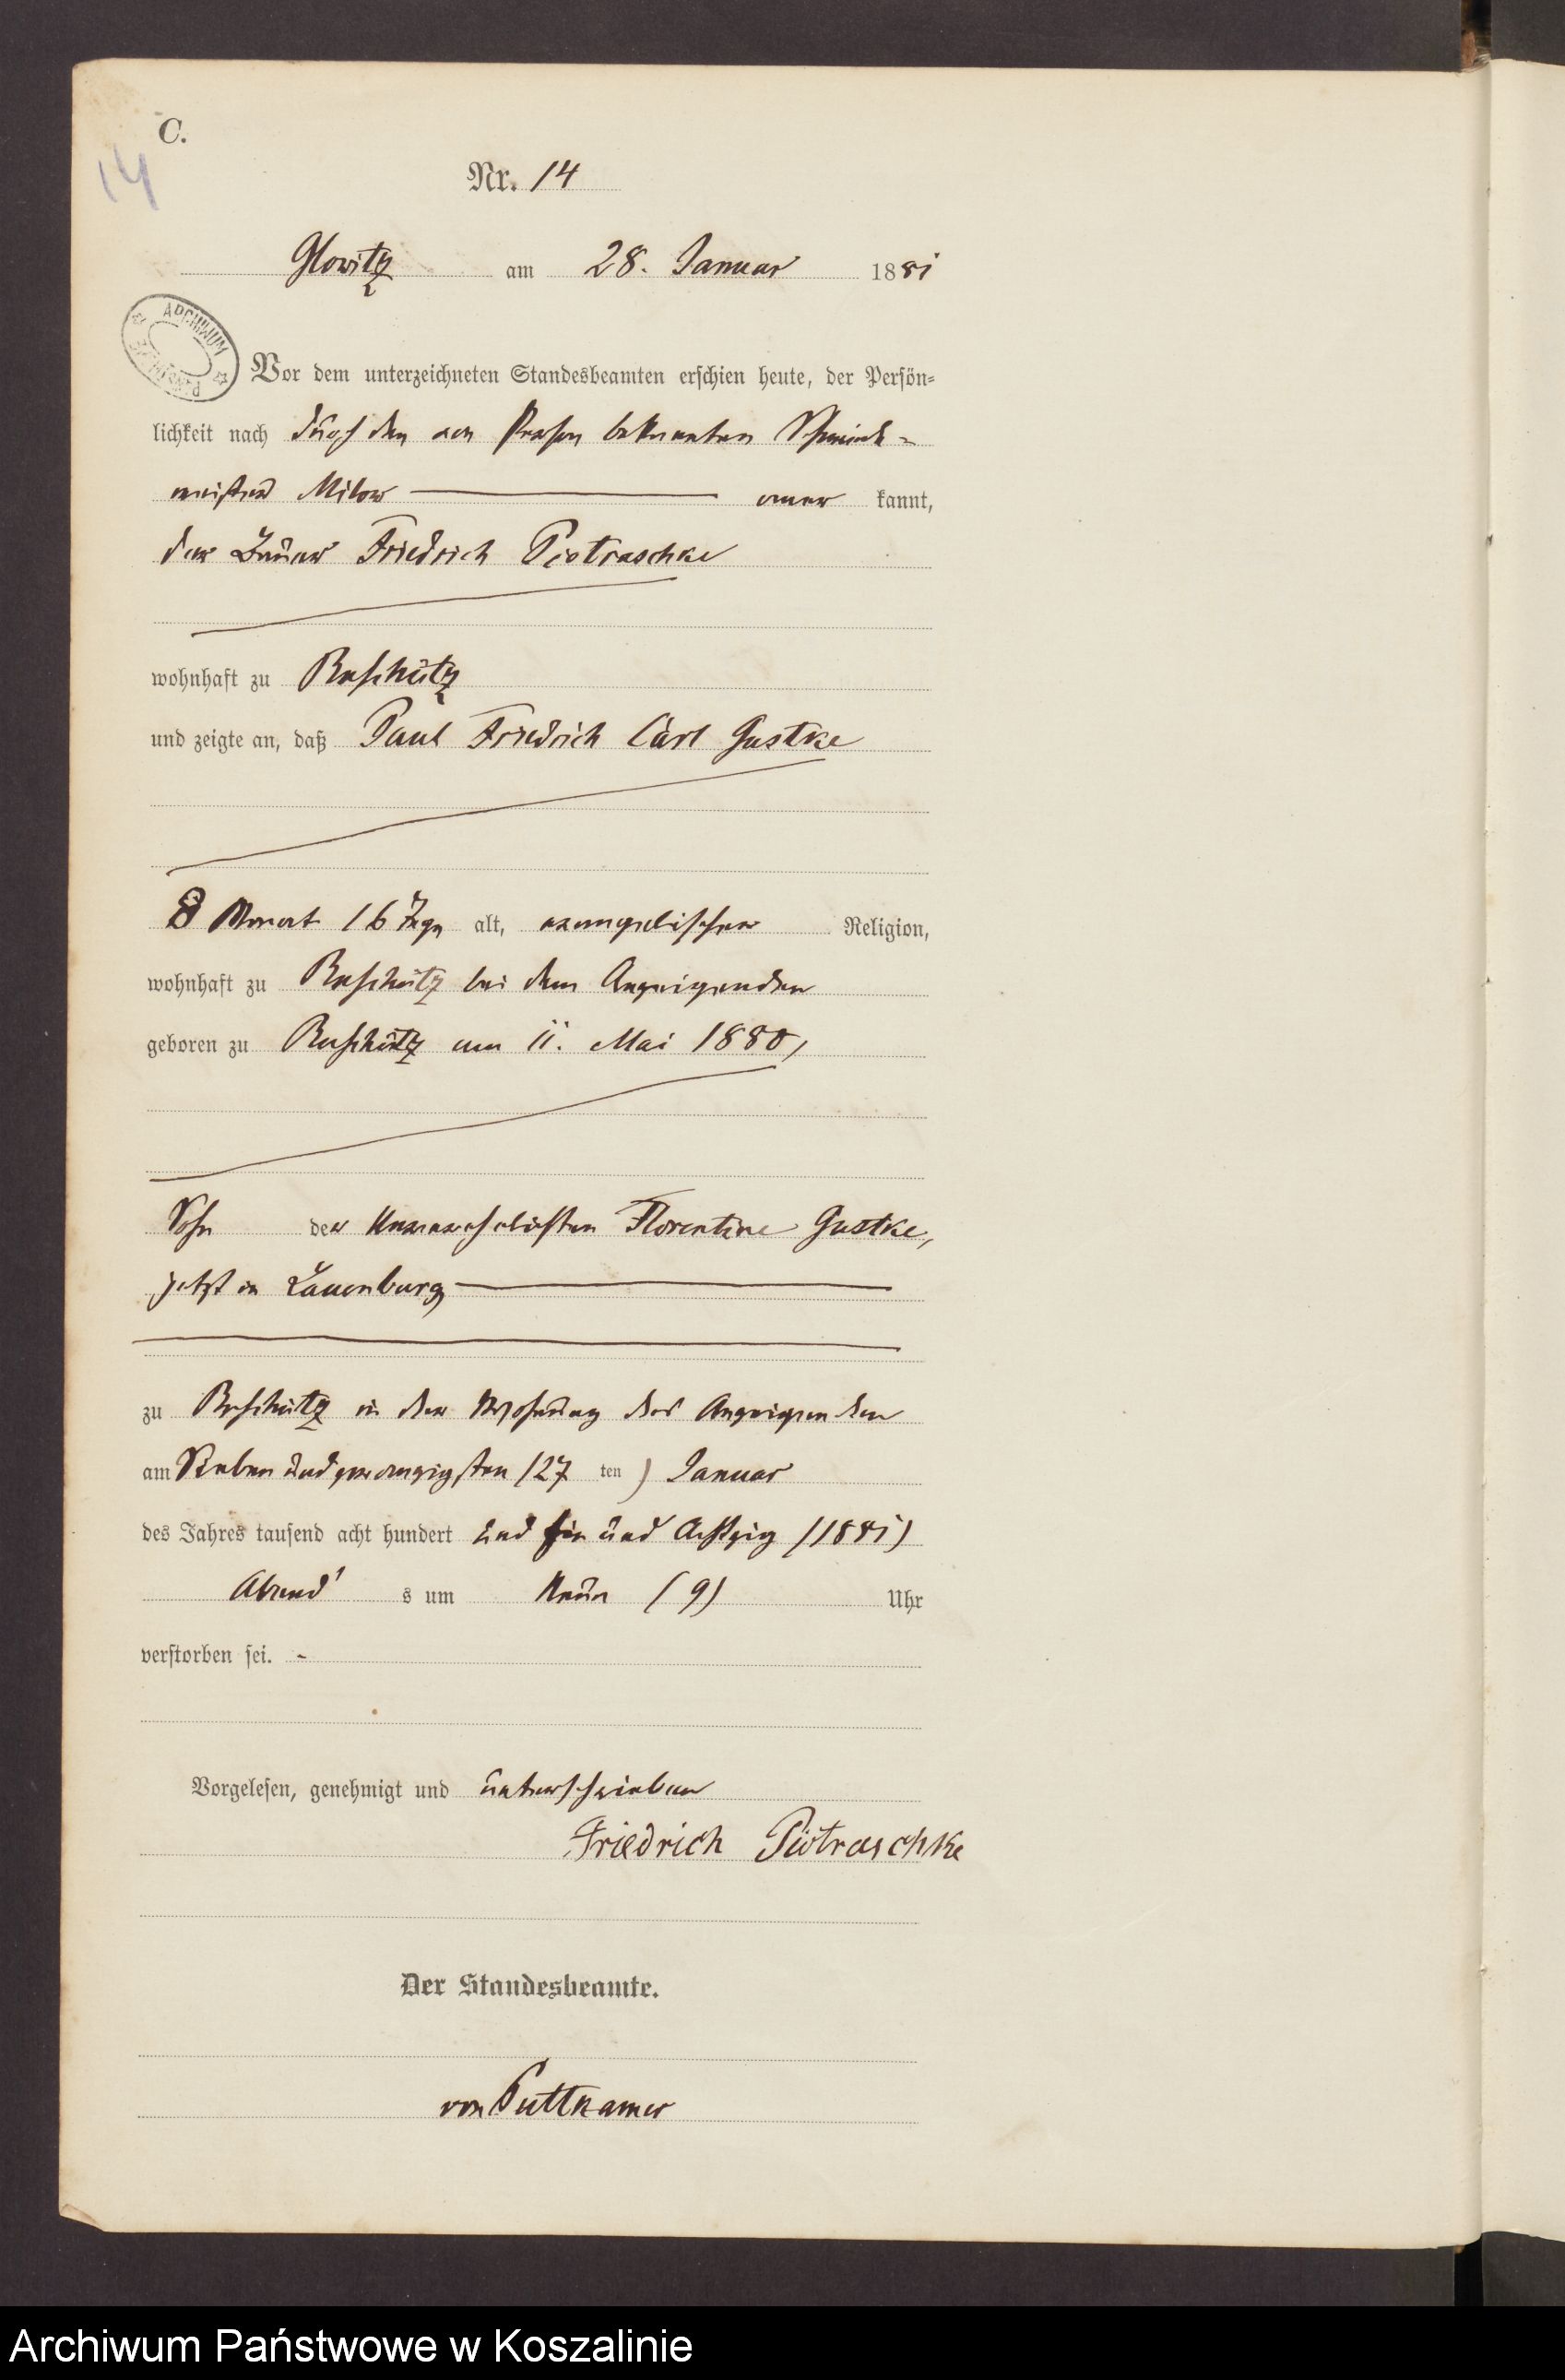 C.
14
Nr. 14
Glowitz am 28. Januar 1881
ARCHIWUM
Vor dem unterzeichneten Standesbeamten erschien heute, der Persön=
lichkeit nach durch den von Person bekannten Schmiede-
meister Milow aner kannt,
der Bauer Friedrich Piotraschke
wohnhaft zu Ruschütz
und zeigte an, daß Paul Friedrich Carl Gustke
8 Monat 16 Tage alt, evangelischer Religion,
wohnhaft zu Ruschütz bei dem Anzeigenden
geboren zu Ruschütz am 11. Mai 1880,
Sohn der Unverehelichten Florentine Gustke,
jetzt in Lauenburg
zu Ruschütz in der Wohnung des Anzeigenden
am Sieben und zwanzigsten (27 ten ) Januar
des Jahres tausend acht hundert und Ein und Achtzig (1881)
Abend's um Neun (9) Uhr
verstorben sei. -
Vorgelesen, genehmigt und unterschrieben
Friedrich Piotraschke
Der Standesbeamte.
von Puttkamer
Archiwum Państwowe w Koszalinie